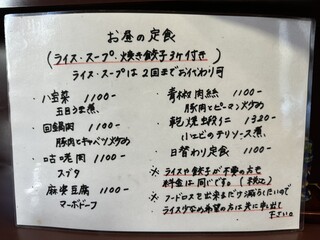 お昼の定食
(ライス・スープ・焼き餃子3ケ付き)
ライス・スープは2回までおかわり可
・八宝菜 1100-
五目うま煮
・回鍋肉 1100-
豚肉とキャベツ炒め
・咕咾肉 1100-
スブタ
・麻婆豆腐 1100-
マーボドーフ
・青椒肉絲 1100-
豚肉とピーマン炒め
・乾焼蝦仁 1320-
小エビのチリソース煮
・日替わり定食 1100-
※ライスや餃子が不要の方も
料金は同じです。(税込)
※フードロスを出来るだけ減らしたいので
ライス少なめ希望の方は先に申し出て
下さい。